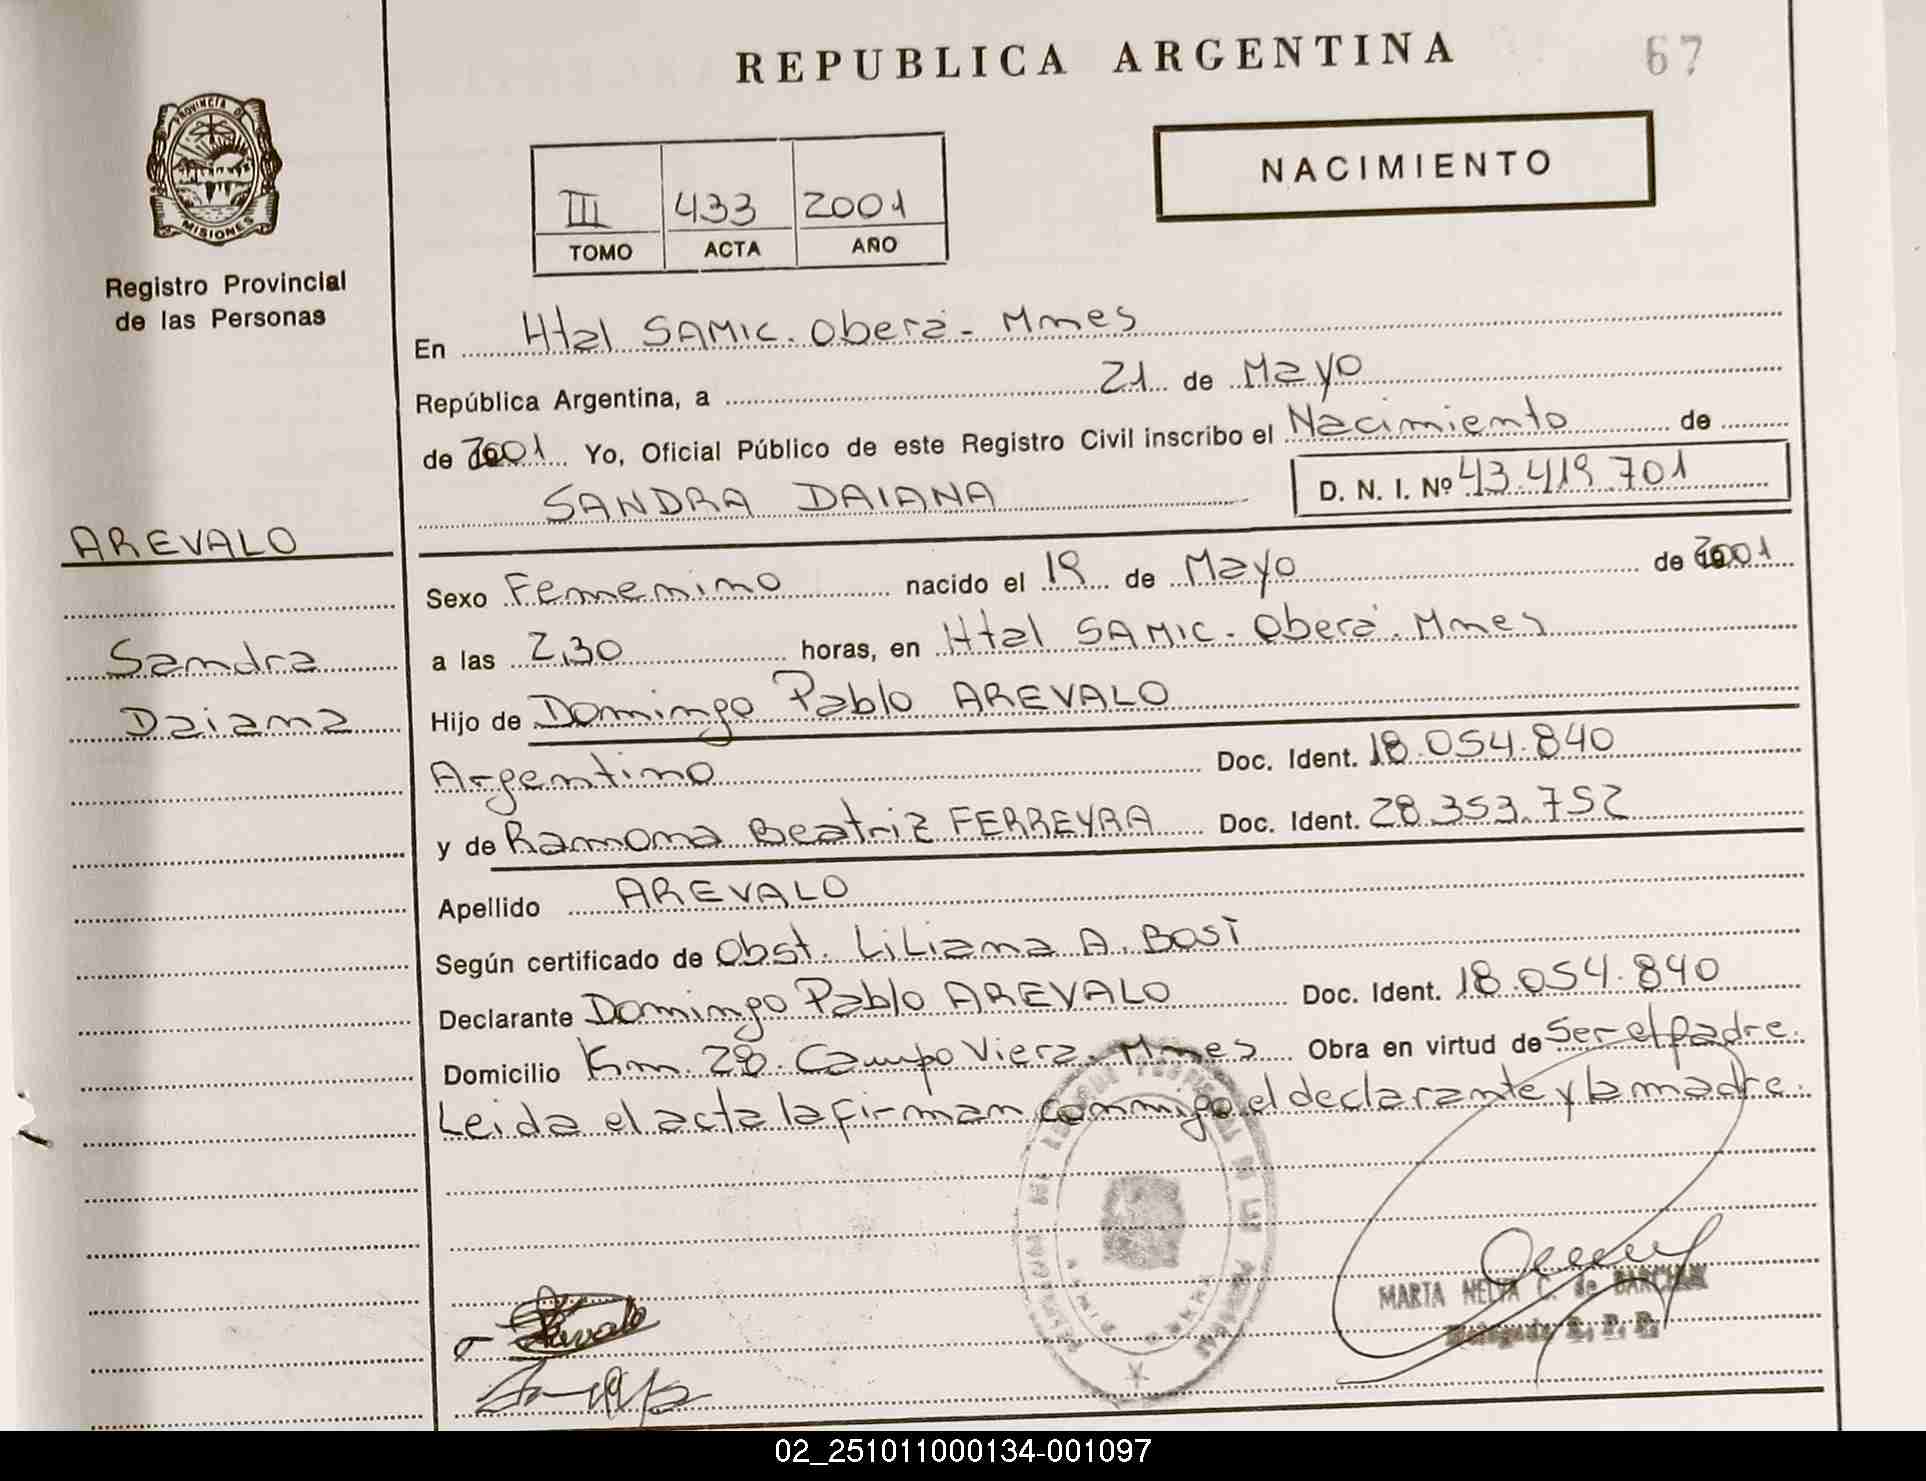 REPUBLICA ARGENTINA
67
PROVINCIA DE
MISIONES
Registro Provincial
de las Personas
III 433 2001
TOMO ACTA AÑO
NACIMIENTO
En Htal SAMIC. Oberá - Mnes
República Argentina, a 21 de Mayo
de 2001 Yo, Oficial Público de este Registro Civil inscribo el Nacimiento de
SANDRA DAIANA D. N. I. Nº 43.419.701
AREVALO
Sexo Femenino nacido el 19 de Mayo de 2001
Sandra
a las 2,30 horas, en Htal SAMIC. Oberá. Mnes
Daiana
Hijo de Domingo Pablo AREVALO
Argentino Doc. Ident. 18.054.840
y de Ramona Beatriz FERREYRA Doc. Ident. 28.353.752
Apellido AREVALO
Según certificado de Obst. Liliana A. Bosi
Declarante Domingo Pablo AREVALO Doc. Ident. 18.054.840
Domicilio Km. 28. Campo Viera. Mnes Obra en virtud de Ser el padre.
Leida el acta la firman conmigo el declarante y la madre.
MARTA NELVA C. de
R. P. P.
02_251011000134-001097